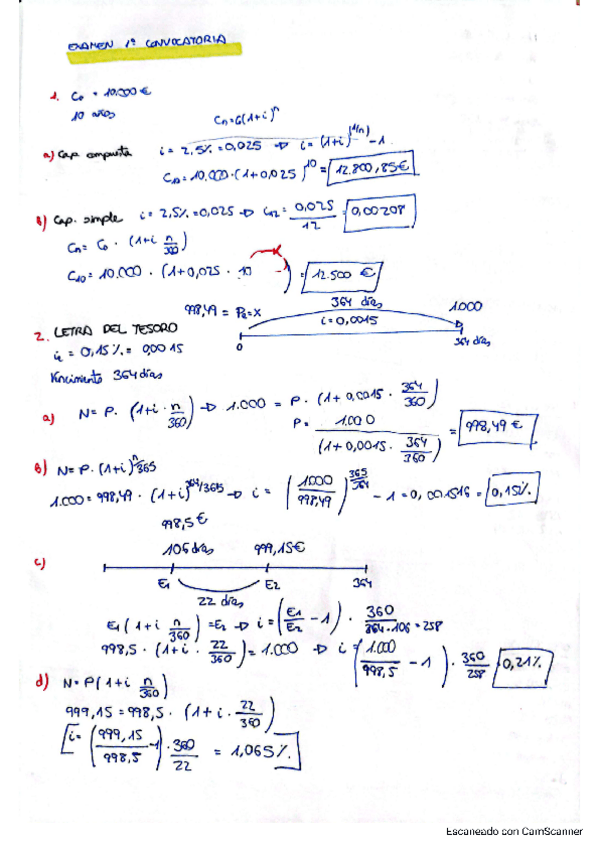 EXAMEN 1ª CONVOCATORIA
1. C₀ = 10.000 €
10 años
Cn = C₀(1+i)^n
a) Cap. compuesta i = 2,5% = 0,025 → i = (1+i)^(1/n) - 1
C10 = 10.000·(1+0,025)^10 = 12.800,85€
b) Cap. simple i = 2,5% = 0,025 → C12 = 0,025/12 = 0,00208
Cn = C₀ · (1+i n/360)
C10 = 10.000 · (1+0,025 · 10) = 12.500 €
364 días
998,49 = P₀ = X 1.000
i = 0,0015
0 364 días
2. LETRA DEL TESORO
i = 0,15% = 0,0015
Vencimiento 364 días
a) N = P · (1+i · n/360) → 1.000 = P · (1+0,0015 · 364/360)
P = 1.000/(1+0,0015 · 364/360) = 998,49 €
b) N = P·(1+i)^n/365
1.000 = 998,49 · (1+i)^364/365 → i = (1000/998,49)^365/364 - 1 = 0,001516 = 0,15%
998,5 €
c) 106 días 999,15€
E1 E2 364
22 días
E1(1+i n/360) = E2 → i = (E1/E2 - 1) · 360/364-106 = 258
998,5 · (1+i · 22/360) = 1.000 → i = (1.000/998,5 - 1) · 360/258 0,21%
d) N = P(1+i n/360)
999,15 = 998,5 · (1+i · 22/360)
i = (999,15/998,5 - 1) · 360/22 = 1,065%
Escaneado con CamScanner